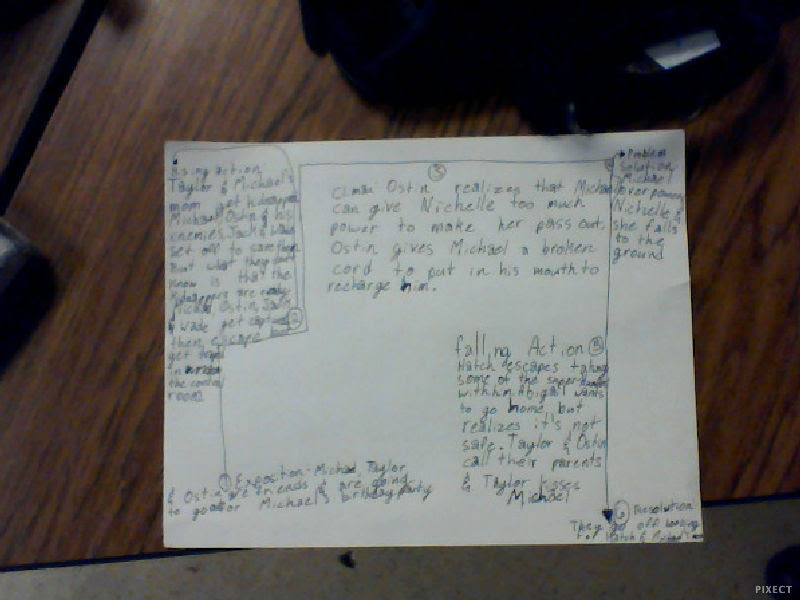 Rising action
Taylor & Michael's
mom get kidnapped
Michael, Ostin & his
enemies, Jack & Wade
set off to save them
But what they don't
know is that the
kidnappers are ready
Michael, Ostin, Jack
& Wade get captured
then, escape
get trapped
in
the control
room
②
③
Climax Ostin realizes that Michael
can give Nichelle too much
power to make her pass out.
Ostin gives Michael a broken
cord to put in his mouth to
recharge him.
Problem
Solution
Michael
overpowers
Nichelle &
she falls
to the
ground
falling Action ⑤
Hatch escapes taking
some of the super
with him. Abigail wants
to go home, but
realizes it's not
safe. Taylor & Ostin
call their parents
& Taylor kisses
Michael
① Exposition: Michael, Taylor
& Ostin are friends & are going
to go for Michael's birthday party
⑥ Resolution
They go off looking
for Hatch &
PIXECT